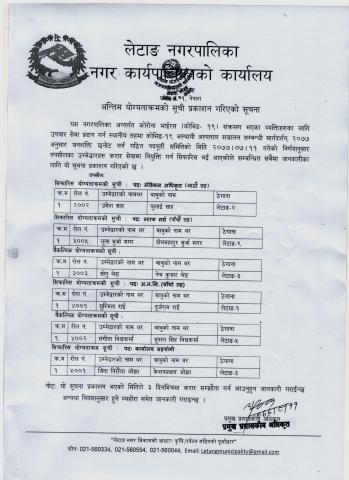 लेटाङ नगरपालिका
नगर कार्यपालिकाको कार्यालय
अन्तिम योग्यताक्रमको सूची प्रकाशन गरिएको सूचना
यस नगरपालिका अन्तर्गत कोरोना भाईरस (कोभिड- १९) संक्रमण भएका व्यक्तिहरुका लागि
उपचार सेवा प्रदान गर्न स्थानीय तहमा कोभिड-१९ अस्थायी अस्पताल सञ्चालन सम्बन्धी मार्गदर्शन, २०७७
अनुसार जनशक्ति छनोट गर्न गठित पदपूर्ती समितिको मिति २०७७।०७।११ गतेको निर्णयानुसार
तपसीलका उम्मेद्धारहरु करार सेवामा नियुक्ति गर्न सिफारिस भई आएकोले सम्बन्धित सबैमा जानकारीका
लागि यो सूचना प्रकाशन गरिएको छ ।
तपसील:
सिफारिस योग्यताक्रमको सूची : पद: मेडिकल अधिकृत (आठौं तह)
क्र.म रोल नं. उम्मेदवारको नामथर बाबुको नाम थर ठेगाना
१ २००२ उमेश साह फुलाई साह लेटाङ-२
सिफारिस योग्यताक्रमको सूची : पद: स्टाफ नर्स (पाँचौं तह)
क्र.म रोल नं. उम्मेदवारको नाम थर बाबुको नाम थर ठेगाना
१ ३००५ जुना बुर्जा मगर टोलबहादुर बुर्जा मगर लेटाङ-९
वैकल्पिक योग्यताक्रमको सूची :
क्र.म रोल नं. उम्मेदवारको नाम थर बाबुको नाम थर ठेगाना
१ ३००३ सोनु श्रेष्ठ नेत्र कुमार श्रेष्ठ लेटाङ-३
सिफारिस योग्यताक्रमको सूची : पद: अ.न.मि. (चौथो तह)
क्र.म रोल नं. उम्मेदवारको नाम थर बाबुको नाम थर ठेगाना
१ ४००१ सुस्मिता राई दुर्जराज राई लेटाङ-५
वैकल्पिक योग्यताक्रमको सूची :
क्र.म रोल नं. उम्मेदवारको नाम थर बाबुको नाम थर ठेगाना
१ ४००२ संगीता विश्वकर्मा भुपाल सिंह विश्वकर्मा लेटाङ-५
सिफारिस योग्यताक्रम सूची : पद: कार्यालय सहयोगी
क्र.म रोल नं. उम्मेदवारको नाम थर बाबुको नाम थर ठेगाना
१ ५००१ जित गिरीस ओझा केशवप्रसाद ओझा लेटाङ-३
नोट: यो सूचना प्रकाशन भएको मितिले ३ दिनभित्रमा करार सम्झौता गर्न आउनुहुन जानकारी गराईन्छ
अन्यथा नियमानुसार हुने व्यहोरा समेत जानकारी गराइन्छ ।
प्रमुख प्रशासकीय अधिकृत
प्रमुख प्रशासकीय अधिकृत
"लेटाङ नगर विकासको आधार: कृषि,पर्यटन सहितको पूर्वाधार"
फोन: 021-560334, 021-560554, 021-560044, Email: Letangmunicipality@gmail.com